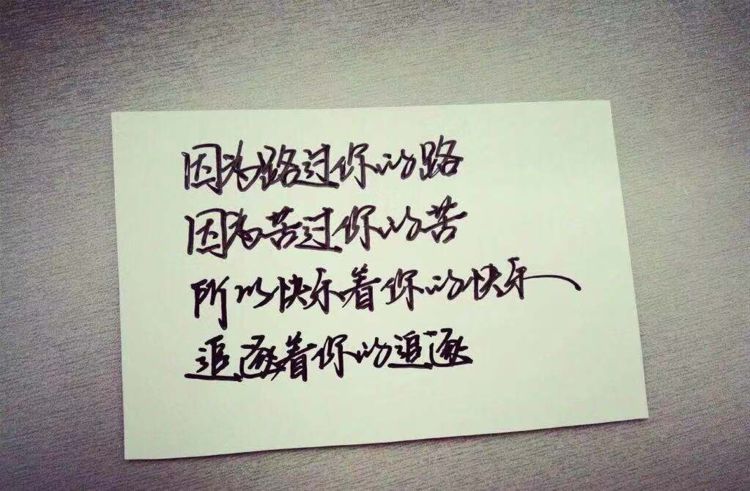 因为路过你的路
因为苦过你的苦
所以快乐着你的快乐
追逐着你的追逐